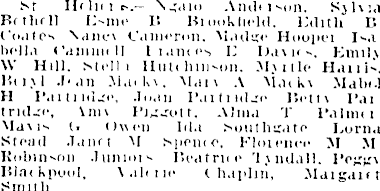 St Heliers.—Ngaio Anderson, Sylvia
Bethell Esme B Brookfield, Edith B
Coates Nancy Cameron, Madge Hooper Isa
bella Cammell Frances E Davies, Emily
W Hill, Stella Hutchinson, Myrtle Harris,
Beryl Jean Macky, Mary A Macky Mabel
H Partridge, Joan Partridge Betty Par
tridge, Amy Piggott, Alma T Palmer
Mavis G Owen Ida Southgate Lorna
Stead Janet M Spence, Florence M M
Robinson Juniors Beatrice Tyndall, Peggy
Blackpool, Valerie Chaplin, Margaret
Smith